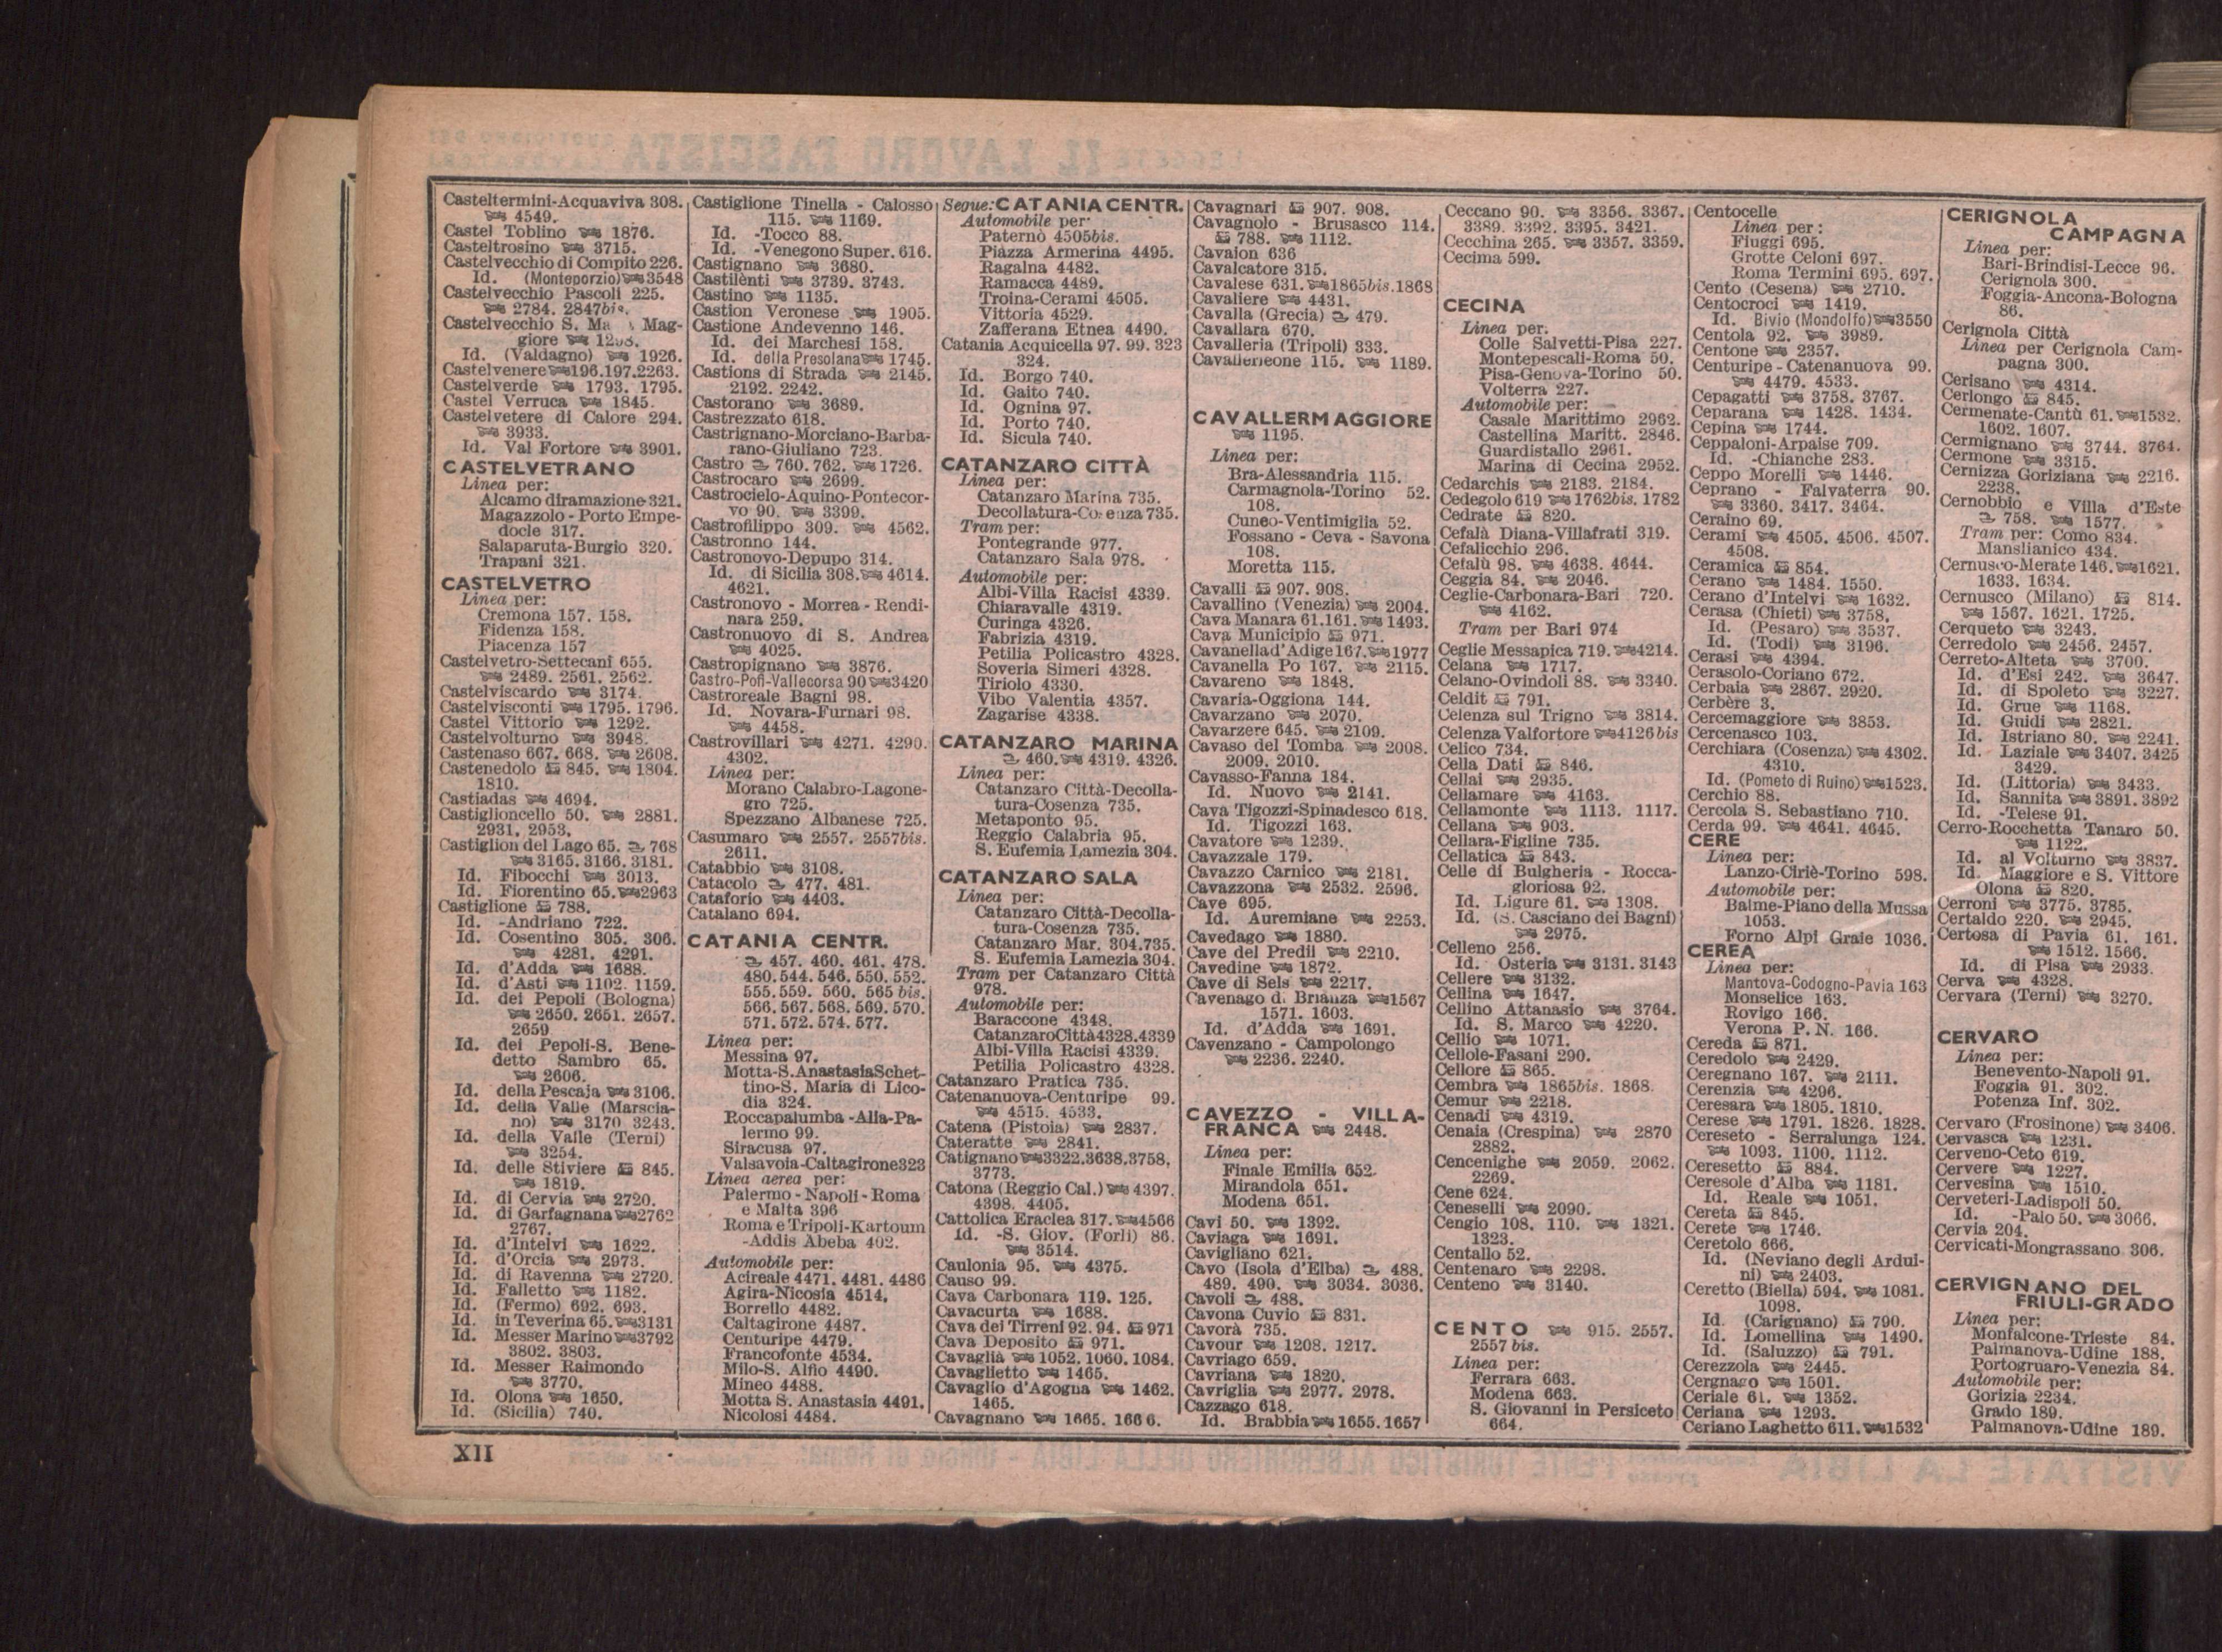 Casteltermini-Acquaviva 308.
4549.
Castel Toblino 1876.
Casteltrosino 3715.
Castelvecchio di Compito 226.
Id. (Monteporzio) 3548
Castelvecchio Pascoli 225.
2784. 2847bis.
Castelvecchio S. Mag-
giore
Id. (Valdagno) 1926.
Castelvenere 196.197.2263.
Castelverde 1793. 1795.
Castel Verruca 1845.
Castelvetere di Calore 294.
3933.
Id. Val Fortore 3901.
CASTELVETRANO
Linea per:
Alcamo diramazione 321.
Magazzolo - Porto Empe-
docle 317.
Salaparuta-Burgio 320.
Trapani 321.
CASTELVETRO
Linea per:
Cremona 157. 158.
Fidenza 158.
Piacenza 157
Castelvetro-Settecani 655.
2489. 2561. 2562.
Castelviscardo 3174.
Castelvisconti 1795. 1796.
Castel Vittorio 1292.
Castelvolturno 3948.
Castenaso 667. 668. 2608.
Castenedolo 845. 1804.
1810.
Castiadas 4694.
Castiglioncello 50. 2881.
2931. 2953.
Castiglion del Lago 65. 768
3165. 3166. 3181.
Id. Fibocchi 3013.
Id. Fiorentino 65. 2963
Castiglione 788.
Id. -Andriano 722.
Id. Cosentino 305. 306.
4281. 4291.
Id. d'Adda 1688.
Id. d'Asti 1102. 1159.
Id. dei Pepoli (Bologna)
2650. 2651. 2657.
2659
Id. dei Pepoli-S. Bene-
detto Sambro 65.
2606.
Id. della Pescaja 3106.
Id. della Valle (Marscia-
no) 3170 3243.
Id. della Valle (Terni)
3254.
Id. delle Stiviere 845.
1819.
Id. di Cervia 2720.
Id. di Garfagnana 2762
2767.
Id. d'Intelvi 1622.
Id. d'Orcia 2973.
Id. di Ravenna 2720.
Id. Falletto 1182.
Id. (Fermo) 692. 693.
Id. in Teverina 65. 3131
Id. Messer Marino 3792
3802. 3803.
Id. Messer Raimondo
3770.
Id. Olona 1650.
Id. (Sicilia) 740.
Castiglione Tinella - Calosso
115. 1169.
Id. -Tocco 88.
Id. -Venegono Super. 616.
Castignano 3680.
Castilènti 3739. 3743.
Castino 1135.
Castion Veronese 1905.
Castione Andevenno 146.
Id. dei Marchesi 158.
Id. della Presolana 1745.
Castions di Strada 2145.
2192. 2242.
Castorano 3689.
Castrezzato 618.
Castrignano-Morciano-Barba-
rano-Giuliano 723.
Castro 760. 762. 1726.
Castrocaro 2699.
Castrocielo-Aquino-Pontecor-
vo 90. 3399.
Castrofilippo 309. 4562.
Castronno 144.
Castronovo-Depupo 314.
Id. di Sicilia 308. 4614.
4621.
Castronovo - Morrea - Rendi-
nara 259.
Castronuovo di S. Andrea
4025.
Castropignano 3876.
Castro-Pofi-Vallecorsa 90 3420
Castroreale Bagni 98.
Id. Novara-Furnari 98.
4458.
Castrovillari 4271. 4290.
4302.
Linea per:
Morano Calabro-Lagone-
gro 725.
Spezzano Albanese 725.
Casumaro 2557. 2557bis.
2611.
Catabbio 3108.
Catacolo 477. 481.
Cataforio 4403.
Catalano 694.
CATANIA CENTR.
457. 460. 461. 478.
480. 544. 546. 550. 552.
555. 559. 560. 565 bis.
566. 567. 568. 569. 570.
571. 572. 574. 577.
Linea per:
Messina 97.
Motta-S.AnastasiaSchet-
tino-S. Maria di Lico-
dia 324.
Roccapalumba -Alia-Pa-
lermo 99.
Siracusa 97.
Valsavoia-Caltagirone323
Linea aerea per:
Palermo - Napoli - Roma
e Malta 396
Roma e Tripoli-Kartoum
-Addis Abeba 402.
Automobile per:
Acireale 4471. 4481. 4486
Agira-Nicosia 4514.
Borrello 4482.
Caltagirone 4487.
Centuripe 4479.
Francofonte 4534.
Milo-S. Alfio 4490.
Mineo 4488.
Motta S. Anastasia 4491.
Nicolosi 4484.
Segue: CATANIA CENTR.
Automobile per:
Paternò 4505bis.
Piazza Armerina 4495.
Ragalna 4482.
Ramacca 4489.
Troina-Cerami 4505.
Vittoria 4529.
Zafferana Etnea 4490.
Catania Acquicella 97. 99. 323
324.
Id. Borgo 740.
Id. Gaito 740.
Id. Ognina 97.
Id. Porto 740.
Id. Sicula 740.
CATANZARO CITTÀ
Linea per:
Catanzaro Marina 735.
Decollatura-Cosenza 735.
Tram per:
Pontegrande 977.
Catanzaro Sala 978.
Automobile per:
Albi-Villa Racisi 4339.
Chiaravalle 4319.
Curinga 4326.
Fabrizia 4319.
Petilia Policastro 4328.
Soveria Simeri 4328.
Tiriolo 4330.
Vibo Valentia 4357.
Zagarise 4338.
CATANZARO MARINA
460. 4319. 4326.
Linea per:
Catanzaro Città-Decolla-
tura-Cosenza 735.
Metaponto 95.
Reggio Calabria 95.
S. Eufemia Lamezia 304.
CATANZARO SALA
Linea per:
Catanzaro Città-Decolla-
tura-Cosenza 735.
Catanzaro Mar. 304.735.
S. Eufemia Lamezia 304.
Tram per Catanzaro Città
978.
Automobile per:
Baraccone 4348.
CatanzaroCittà4328.4339
Albi-Villa Racisi 4339.
Petilia Policastro 4328.
Catanzaro Pratica 735.
Catenanuova-Centuripe 99.
4515. 4533.
Catena (Pistoia) 2837.
Cateratte 2841.
Catignano 3322.3638.3758.
3773.
Catona (Reggio Cal.) 4397.
4398. 4405.
Cattolica Eraclea 317. 4566
Id. -S. Giov. (Forlì) 86.
3514.
Caulonia 95. 4375.
Causo 99.
Cava Carbonara 119. 125.
Cavacurta 1688.
Cava dei Tirreni 92. 94. 971
Cava Deposito 971.
Cavaglià 1052. 1060. 1084.
Cavaglietto 1465.
Cavaglio d'Agogna 1462.
1465.
Cavagnano 1665. 1666.
Cavagnari 907. 908.
Cavagnolo - Brusasco 114.
788. 1112.
Cavaion 636
Cavalcatore 315.
Cavalese 631. 1865bis.1868
Cavaliere 4431.
Cavalla (Grecia) 479.
Cavallara 670.
Cavalleria (Tripoli) 333.
Cavallerleone 115. 1189.
CAVALLERMAGGIORE
1195.
Linea per:
Bra-Alessandria 115.
Carmagnola-Torino 52.
108.
Cuneo-Ventimiglia 52.
Fossano - Ceva - Savona
108.
Moretta 115.
Cavalli 907. 908.
Cavallino (Venezia) 2004.
Cava Manara 61.161. 1493.
Cava Municipio 971.
Cavanella d'Adige 167. 1977
Cavanella Po 167. 2115.
Cavareno 1848.
Cavaria-Oggiona 144.
Cavarzano 2070.
Cavarzere 645. 2109.
Cavaso del Tomba 2008.
2009. 2010.
Cavasso-Fanna 184.
Id. Nuovo 2141.
Cava Tigozzi-Spinadesco 618.
Id. Tigozzi 163.
Cavatore 1239.
Cavazzale 179.
Cavazzo Carnico 2181.
Cavazzona 2532. 2596.
Cave 695.
Id. Auremiane 2253.
Cavedago 1880.
Cave del Predil 2210.
Cavedine 1872.
Cave di Sels 2217.
Cavenago di Brianza 1567
1571. 1603.
Id. d'Adda 1691.
Cavenzano - Campolongo
2236. 2240.
CAVEZZO - VILLA-
FRANCA 2448.
Linea per:
Finale Emilia 652.
Mirandola 651.
Modena 651.
Cavi 50. 1392.
Caviaga 1691.
Cavigliano 621.
Cavo (Isola d'Elba) 488.
489. 490. 3034. 3036.
Cavoli 488.
Cavona Cuvio 831.
Cavorà 735.
Cavour 1208. 1217.
Cavriago 659.
Cavriana 1820.
Cavriglia 2977. 2978.
Cazzago 618.
Id. Brabbia 1655.1657
Ceccano 90. 3356. 3367.
3389. 3392. 3395. 3421.
Cecchina 265. 3357. 3359.
Cecima 599.
CECINA
Linea per:
Colle Salvetti-Pisa 227.
Montepescali-Roma 50.
Pisa-Genova-Torino 50.
Volterra 227.
Automobile per:
Casale Marittimo 2962.
Castellina Maritt. 2846.
Guardistallo 2961.
Marina di Cecina 2952.
Cedarchis 2183. 2184.
Cedegolo 619 1762bis. 1782
Cedrate 820.
Cefalà Diana-Villafrati 319.
Cefalicchio 296.
Cefalù 98. 4638. 4644.
Ceggia 84. 2046.
Ceglie-Carbonara-Bari 720.
4162.
Tram per Bari 974
Ceglie Messapica 719. 4214.
Celana 1717.
Celano-Ovindoli 88. 3340.
Celdit 791.
Celenza sul Trigno 3814.
Celenza Valfortore 4126bis
Celico 734.
Cella Dati 846.
Cellai 2935.
Cellamare 4163.
Cellamonte 1113. 1117.
Cellana 903.
Cellara-Figline 735.
Cellatica 843.
Celle di Bulgheria - Rocca-
gloriosa 92.
Id. Ligure 61. 1308.
Id. (S. Casciano dei Bagni)
2975.
Celleno 256.
Id. Osteria 3131. 3143
Cellere 3132.
Cellina 1647.
Cellino Attanasio 3764.
Id. S. Marco 4220.
Cellio 1071.
Cellole-Fasani 290.
Cellore 865.
Cembra 1865bis. 1868.
Cemur 2218.
Cenadi 4319.
Cenaia (Crespina) 2870
2882.
Cencenighe 2059. 2062.
2269.
Cene 624.
Ceneselli 2090.
Cengio 108. 110. 1321.
1323.
Centallo 52.
Centenaro 2298.
Centeno 3140.
CENTO 915. 2557.
2557 bis.
Linea per:
Ferrara 663.
Modena 663.
S. Giovanni in Persiceto
664.
Centocelle
Linea per:
Fiuggi 695.
Grotte Celoni 697.
Roma Termini 695. 697.
Cento (Cesena) 2710.
Centocroci 1419.
Id. Bivio (Mondolfo) 3550
Centola 92. 3989.
Centone 2357.
Centuripe - Catenanuova 99.
4479. 4533.
Cepagatti 3758. 3767.
Ceparana 1428. 1434.
Cepina 1744.
Ceppaloni-Arpaise 709.
Id. -Chianche 283.
Ceppo Morelli 1446.
Ceprano - Falvaterra 90.
3360. 3417. 3464.
Ceraino 69.
Cerami 4505. 4506. 4507.
4508.
Ceramica 854.
Cerano 1484. 1550.
Cerano d'Intelvi 1632.
Cerasa (Chieti) 3758.
Id. (Pesaro) 3537.
Id. (Todi) 3196.
Cerasi 4394.
Cerasolo-Coriano 672.
Cerbaia 2867. 2920.
Cerbère 3.
Cercemaggiore 3853.
Cercenasco 103.
Cerchiara (Cosenza) 4302.
4310.
Id. (Pometo di Ruino) 1523.
Cerchio 88.
Cercola S. Sebastiano 710.
Cerda 99. 4641. 4645.
CERE
Linea per:
Lanzo-Ciriè-Torino 598.
Automobile per:
Balme-Piano della Mussa
1053.
Forno Alpi Graie 1036.
CEREA
Linea per:
Mantova-Codogno-Pavia 163
Monselice 163.
Rovigo 166.
Verona P. N. 166.
Cereda 871.
Ceredolo 2429.
Ceregnano 167. 2111.
Cerenzia 4296.
Ceresara 1805. 1810.
Cerese 1791. 1826. 1828.
Cereseto - Serralunga 124.
1093. 1100. 1112.
Ceresetto 884.
Ceresole d'Alba 1181.
Id. Reale 1051.
Cereta 845.
Cerete 1746.
Ceretolo 666.
Id. (Neviano degli Ardui-
ni) 2403.
Ceretto (Biella) 594. 1081.
1098.
Id. (Carignano) 790.
Id. Lomellina 1490.
Id. (Saluzzo) 791.
Cerezzola 2445.
Cergnago 1501.
Ceriale 61. 1352.
Ceriana 1293.
Ceriano Laghetto 611. 1532
CERIGNOLA
CAMPAGNA
Linea per:
Bari-Brindisi-Lecce 96.
Cerignola 300.
Foggia-Ancona-Bologna
86.
Cerignola Città
Linea per Cerignola Cam-
pagna 300.
Cerisano 4314.
Cerlongo 845.
Cermenate-Cantù 61. 1532.
1602. 1607.
Cermignano 3744. 3764.
Cermone 3315.
Cernizza Goriziana 2216.
2238.
Cernobbio e Villa d'Este
758. 1577.
Tram per: Como 834.
Manslianico 434.
Cernusco-Merate 146. 1621.
1633. 1634.
Cernusco (Milano) 814.
1567. 1621. 1725.
Cerqueto 3243.
Cerredolo 2456. 2457.
Cerreto-Alteta 3700.
Id. d'Esi 242. 3647.
Id. di Spoleto 3227.
Id. Grue 1168.
Id. Guidi 2821.
Id. Istriano 80. 2241.
Id. Laziale 3407. 3425
3429.
Id. (Littoria) 3433.
Id. Sannita 3891. 3892
Id. -Telese 91.
Cerro-Rocchetta Tanaro 50.
1122.
Id. al Volturno 3837.
Id. Maggiore e S. Vittore
Olona 820.
Cerroni 3775. 3785.
Certaldo 220. 2945.
Certosa di Pavia 61. 161.
1512. 1566.
Id. di Pisa 2933.
Cerva 4328.
Cervara (Terni) 3270.
CERVARO
Linea per:
Benevento-Napoli 91.
Foggia 91. 302.
Potenza Inf. 302.
Cervaro (Frosinone) 3406.
Cervasca 1231.
Cerveno-Ceto 619.
Cervere 1227.
Cervesina 1510.
Cerveteri-Ladispoli 50.
Id. -Palo 50. 3066.
Cervia 204.
Cervicati-Mongrassano 306.
CERVIGNANO DEL
FRIULI-GRADO
Linea per:
Monfalcone-Trieste 84.
Palmanova-Udine 188.
Portogruaro-Venezia 84.
Automobile per:
Gorizia 2234.
Grado 189.
Palmanova-Udine 189.
XII